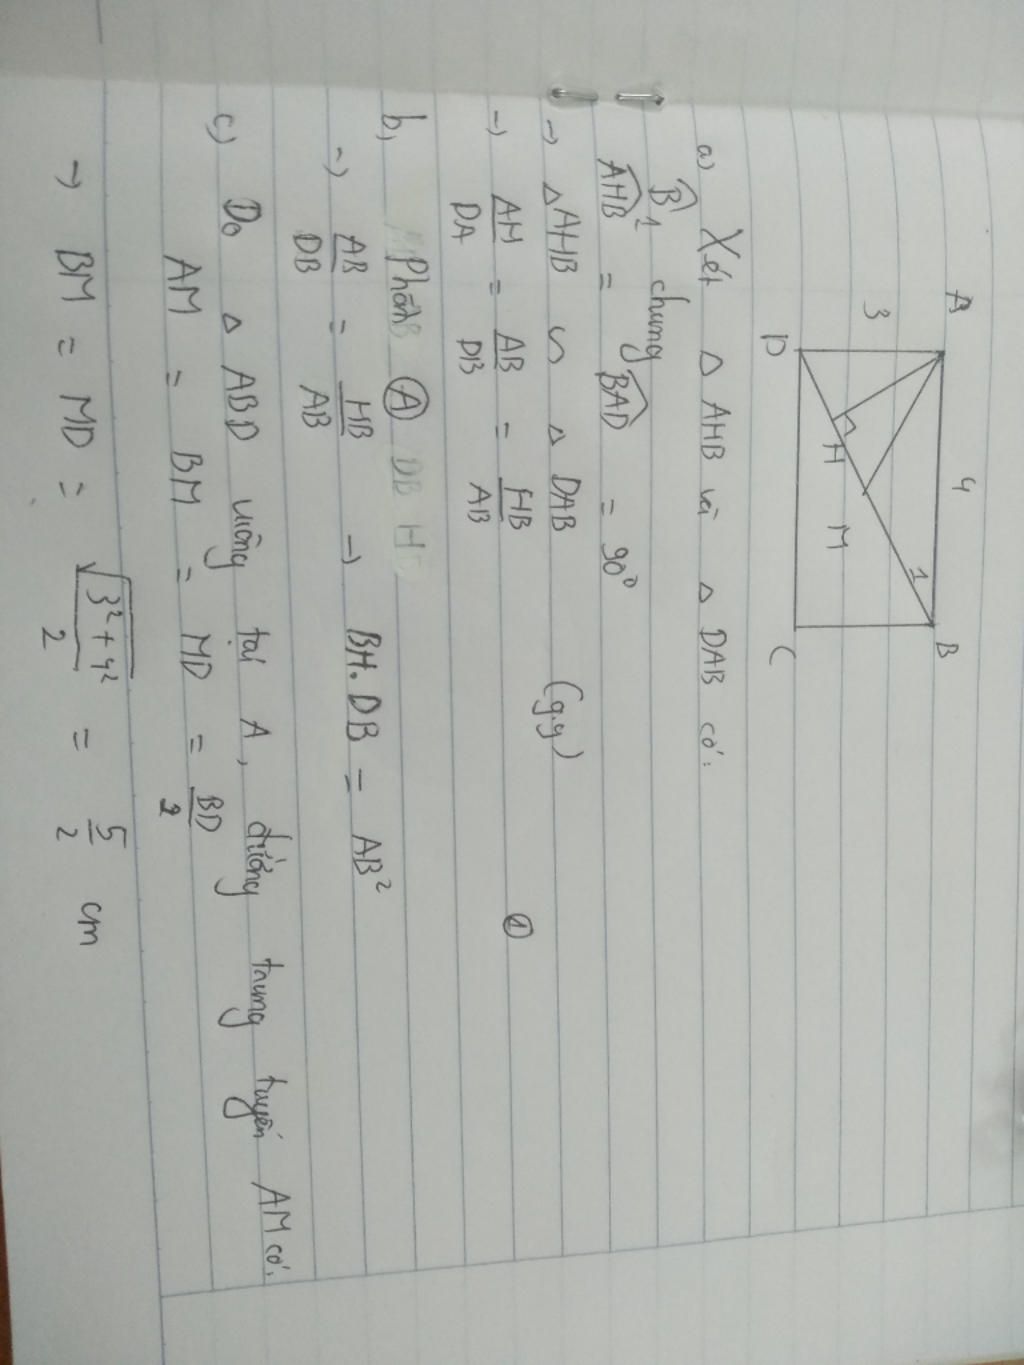 A 4 B
3 1
H M
D C
a) Xét △ AHB và △ DAB có:
B̂₁ chung
AHB = BAD = 90°
→ △AHB ∽ △ DAB (g.g)
→ AH/DA = AB/DB = HB/AB ①
b, Ⓐ DB
→ AB/DB = HB/AB → BH.DB = AB²
c) Do △ ABD vuông tại A, đường trung tuyến AM có:
AM = BM = MD = BD/2
→ BM = MD = √(3² + 4²)/2 = 5/2 cm